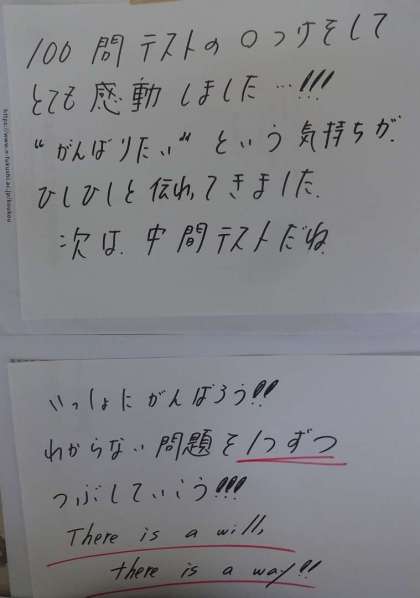 100問テストの○つけをして
とても感動しました…!!!
“がんばりたい”という気持ちが.
ひしひしと伝わってきました.
次は.中間テストだね.
いっしょにがんばろう!!
わからない問題を1つずつ
つぶしていこう!!!
There is a will,
there is a way!!